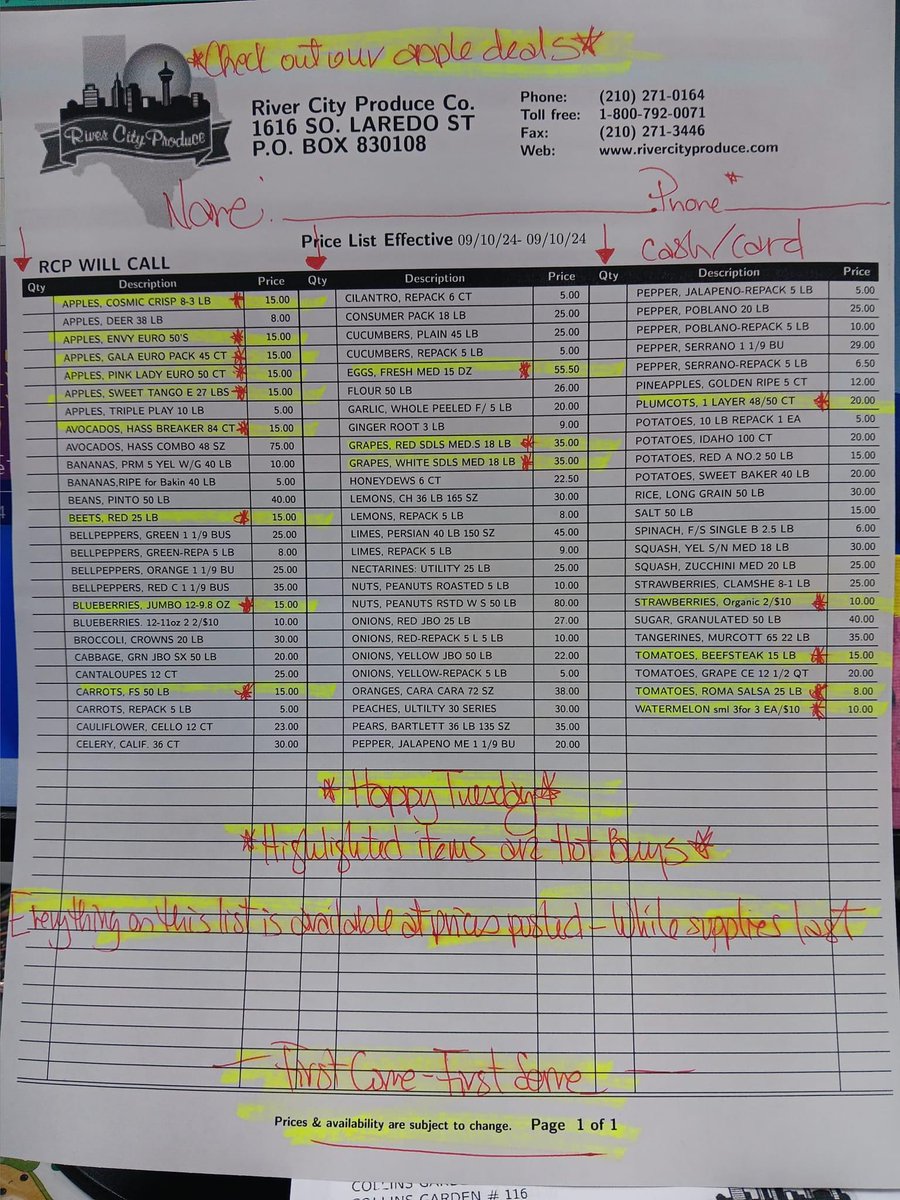 *Check out our apple deals*
River City Produce
River City Produce Co.
1616 SO. LAREDO ST
P.O. BOX 830108
Phone: (210) 271-0164
Toll free: 1-800-792-0071
Fax: (210) 271-3446
Web: www.rivercityproduce.com
Name: Phone*
Price List Effective 09/10/24- 09/10/24
cash/card
RCP WILL CALL
Qty Description Price
APPLES, COSMIC CRISP 8-3 LB * 15.00
APPLES, DEER 38 LB 8.00
APPLES, ENVY EURO 50'S * 15.00
APPLES, GALA EURO PACK 45 CT * 15.00
APPLES, PINK LADY EURO 50 CT * 15.00
APPLES, SWEET TANGO E 27 LBS * 15.00
APPLES, TRIPLE PLAY 10 LB 5.00
AVOCADOS, HASS BREAKER 84 CT * 15.00
AVOCADOS, HASS COMBO 48 SZ 75.00
BANANAS, PRM 5 YEL W/G 40 LB 10.00
BANANAS,RIPE for Bakin 40 LB 5.00
BEANS, PINTO 50 LB 40.00
BEETS, RED 25 LB * 15.00
BELLPEPPERS, GREEN 1 1/9 BUS 25.00
BELLPEPPERS, GREEN-REPA 5 LB 8.00
BELLPEPPERS, ORANGE 1 1/9 BU 25.00
BELLPEPPERS, RED C 1 1/9 BUS 35.00
BLUEBERRIES, JUMBO 12-9.8 OZ * 15.00
BLUEBERRIES. 12-11oz 2 2/$10 10.00
BROCCOLI, CROWNS 20 LB 30.00
CABBAGE, GRN JBO SX 50 LB 20.00
CANTALOUPES 12 CT 25.00
CARROTS, FS 50 LB * 15.00
CARROTS, REPACK 5 LB 5.00
CAULIFLOWER, CELLO 12 CT 23.00
CELERY, CALIF. 36 CT 30.00
Qty Description Price
CILANTRO, REPACK 6 CT 5.00
CONSUMER PACK 18 LB 25.00
CUCUMBERS, PLAIN 45 LB 25.00
CUCUMBERS, REPACK 5 LB 5.00
EGGS, FRESH MED 15 DZ * 55.50
FLOUR 50 LB 26.00
GARLIC, WHOLE PEELED F/ 5 LB 20.00
GINGER ROOT 3 LB 9.00
GRAPES, RED SDLS MED.S 18 LB * 35.00
GRAPES, WHITE SDLS MED 18 LB * 35.00
HONEYDEWS 6 CT 22.50
LEMONS, CH 36 LB 165 SZ 30.00
LEMONS, REPACK 5 LB 8.00
LIMES, PERSIAN 40 LB 150 SZ 45.00
LIMES, REPACK 5 LB 9.00
NECTARINES: UTILITY 25 LB 25.00
NUTS, PEANUTS ROASTED 5 LB 10.00
NUTS, PEANUTS RSTD W S 50 LB 80.00
ONIONS, RED JBO 25 LB 27.00
ONIONS, RED-REPACK 5 L 5 LB 10.00
ONIONS, YELLOW JBO 50 LB 22.00
ONIONS, YELLOW-REPACK 5 LB 5.00
ORANGES, CARA CARA 72 SZ 38.00
PEACHES, ULTILTY 30 SERIES 30.00
PEARS, BARTLETT 36 LB 135 SZ 35.00
PEPPER, JALAPENO ME 1 1/9 BU 20.00
Qty Description Price
PEPPER, JALAPENO-REPACK 5 LB 5.00
PEPPER, POBLANO 20 LB 25.00
PEPPER, POBLANO-REPACK 5 LB 10.00
PEPPER, SERRANO 1 1/9 BU 29.00
PEPPER, SERRANO-REPACK 5 LB 6.50
PINEAPPLES, GOLDEN RIPE 5 CT 12.00
PLUMCOTS, 1 LAYER 48/50 CT * 20.00
POTATOES, 10 LB REPACK 1 EA 5.00
POTATOES, IDAHO 100 CT 20.00
POTATOES, RED A NO.2 50 LB 15.00
POTATOES, SWEET BAKER 40 LB 20.00
RICE, LONG GRAIN 50 LB 30.00
SALT 50 LB 15.00
SPINACH, F/S SINGLE B 2.5 LB 6.00
SQUASH, YEL S/N MED 18 LB 30.00
SQUASH, ZUCCHINI MED 20 LB 25.00
STRAWBERRIES, CLAMSHE 8-1 LB 25.00
STRAWBERRIES, Organic 2/$10 * 10.00
SUGAR, GRANULATED 50 LB 40.00
TANGERINES, MURCOTT 65 22 LB 35.00
TOMATOES, BEEFSTEAK 15 LB * 15.00
TOMATOES, GRAPE CE 12 1/2 QT 20.00
TOMATOES, ROMA SALSA 25 LB * 8.00
WATERMELON sml 3for 3 EA/$10 * 10.00
*Happy Tuesday*
*Highlighted items are Hot Buys*
Everything on this list is available at prices posted - While supplies last
- First Come - First Serve -
Prices & availability are subject to change. Page 1 of 1
COLLINS GARDEN # 116